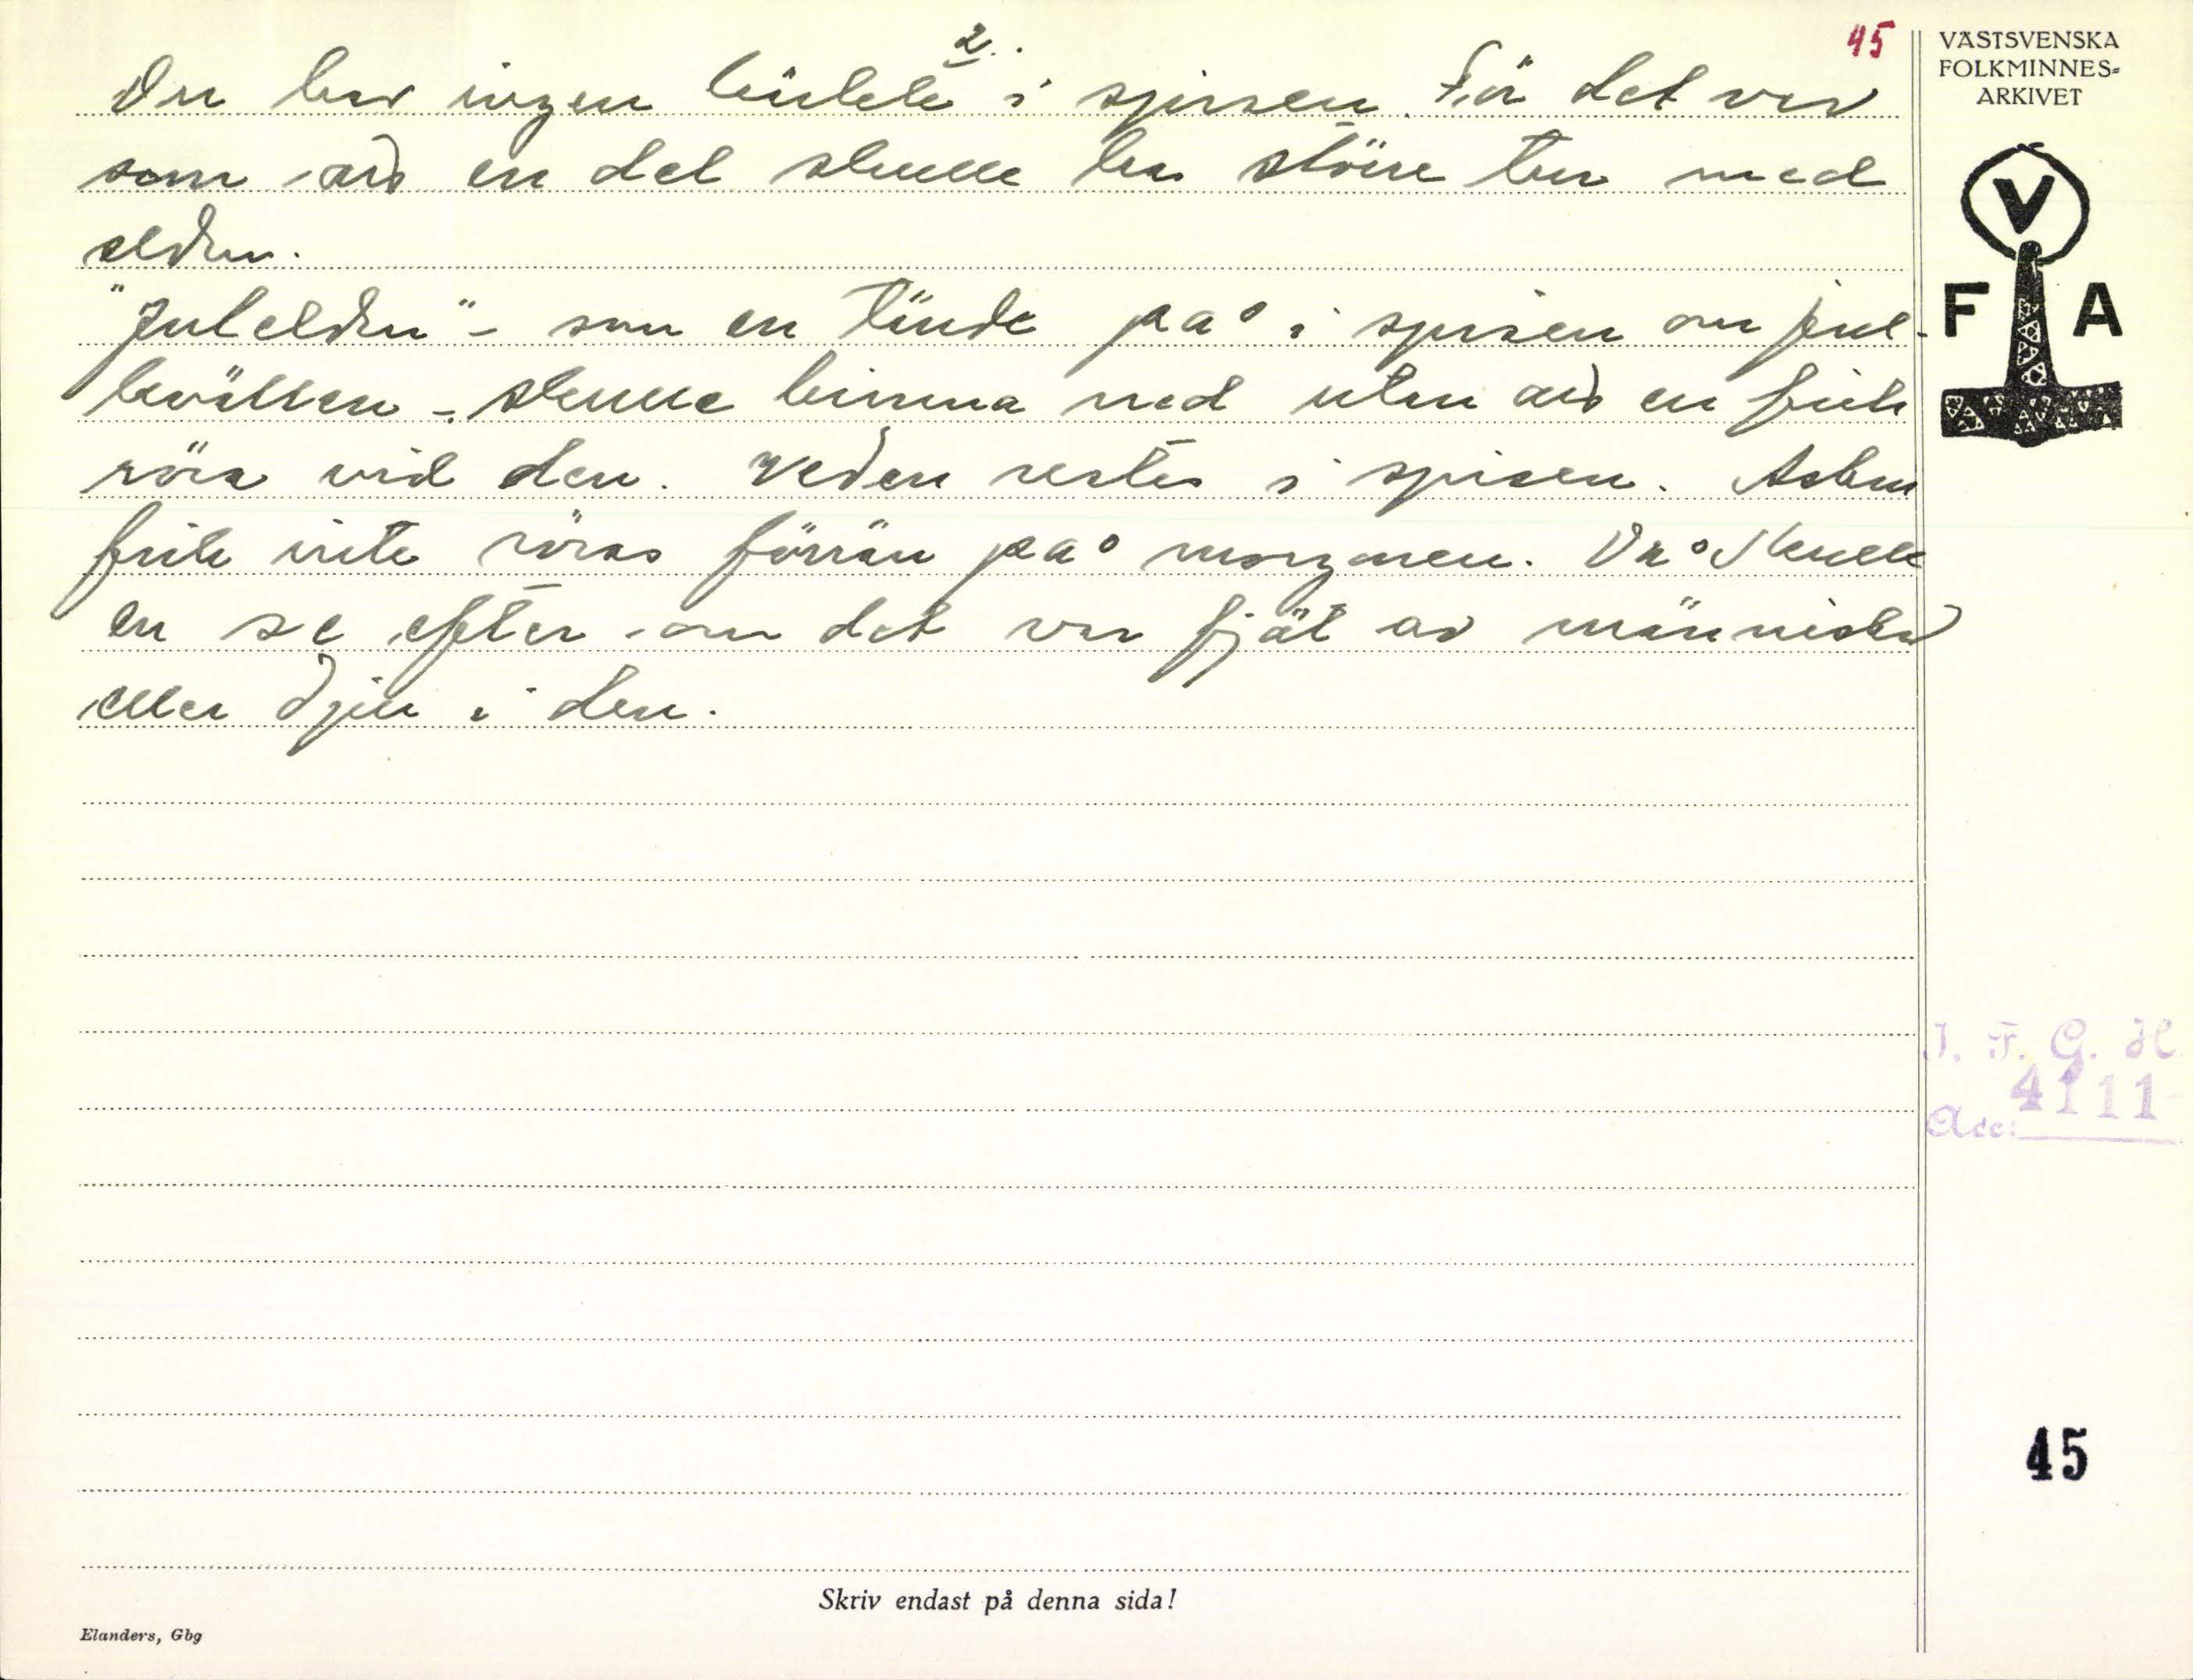 2.
45
VÄSTSVENSKA
FOLKMINNES-
ARKIVET
ingen i spissen. För det var
som av en del skulle ha större tur med
elden.
V
F A
"Julelden" - som en tände på i spisen om jul-
kvällen - skulle brinna ned utan av en fick
röra vid den. Veden restes i spisen. Askan
fick inte röras förrän på morgonen. Då skulle
en se efter om det var fjät av människa
eller djur i den.
I. F. G. H.
Acc: 4111
45
Skriv endast på denna sida!
Elanders, Gbg